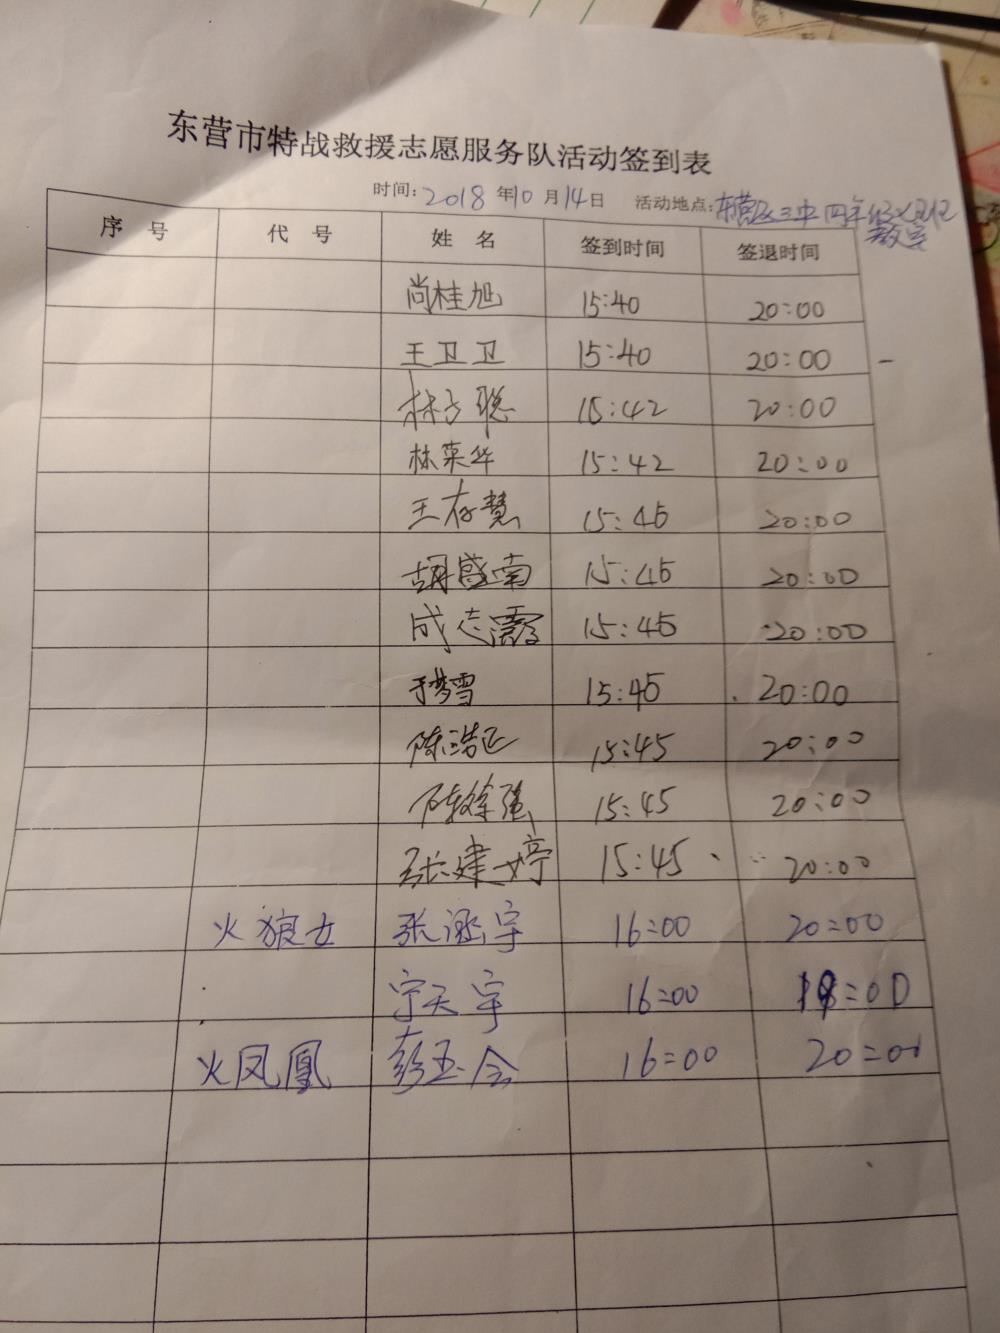 东营市特战救援志愿服务队活动签到表
时间:2018年10月14日 活动地点:东营区三中四年级
教室
序号 代号 姓名 签到时间 签退时间
尚桂旭 15:40 20:00
王卫卫 15:40 20:00
林子聪 15:42 20:00
林荣华 15:42 20:00
王存慧 15:45 20:00
胡盛南 15:45 20:00
成志霞 15:45 20:00
于梦雪 15:45 20:00
陈浩正 15:45 20:00
陈徐强 15:45 20:00
张建婷 15:45 20:00
火狼女 张涵宇 16:00 20:00
宁天宇 16:00 :00
火凤凰 彭玉会 16:00 20:00